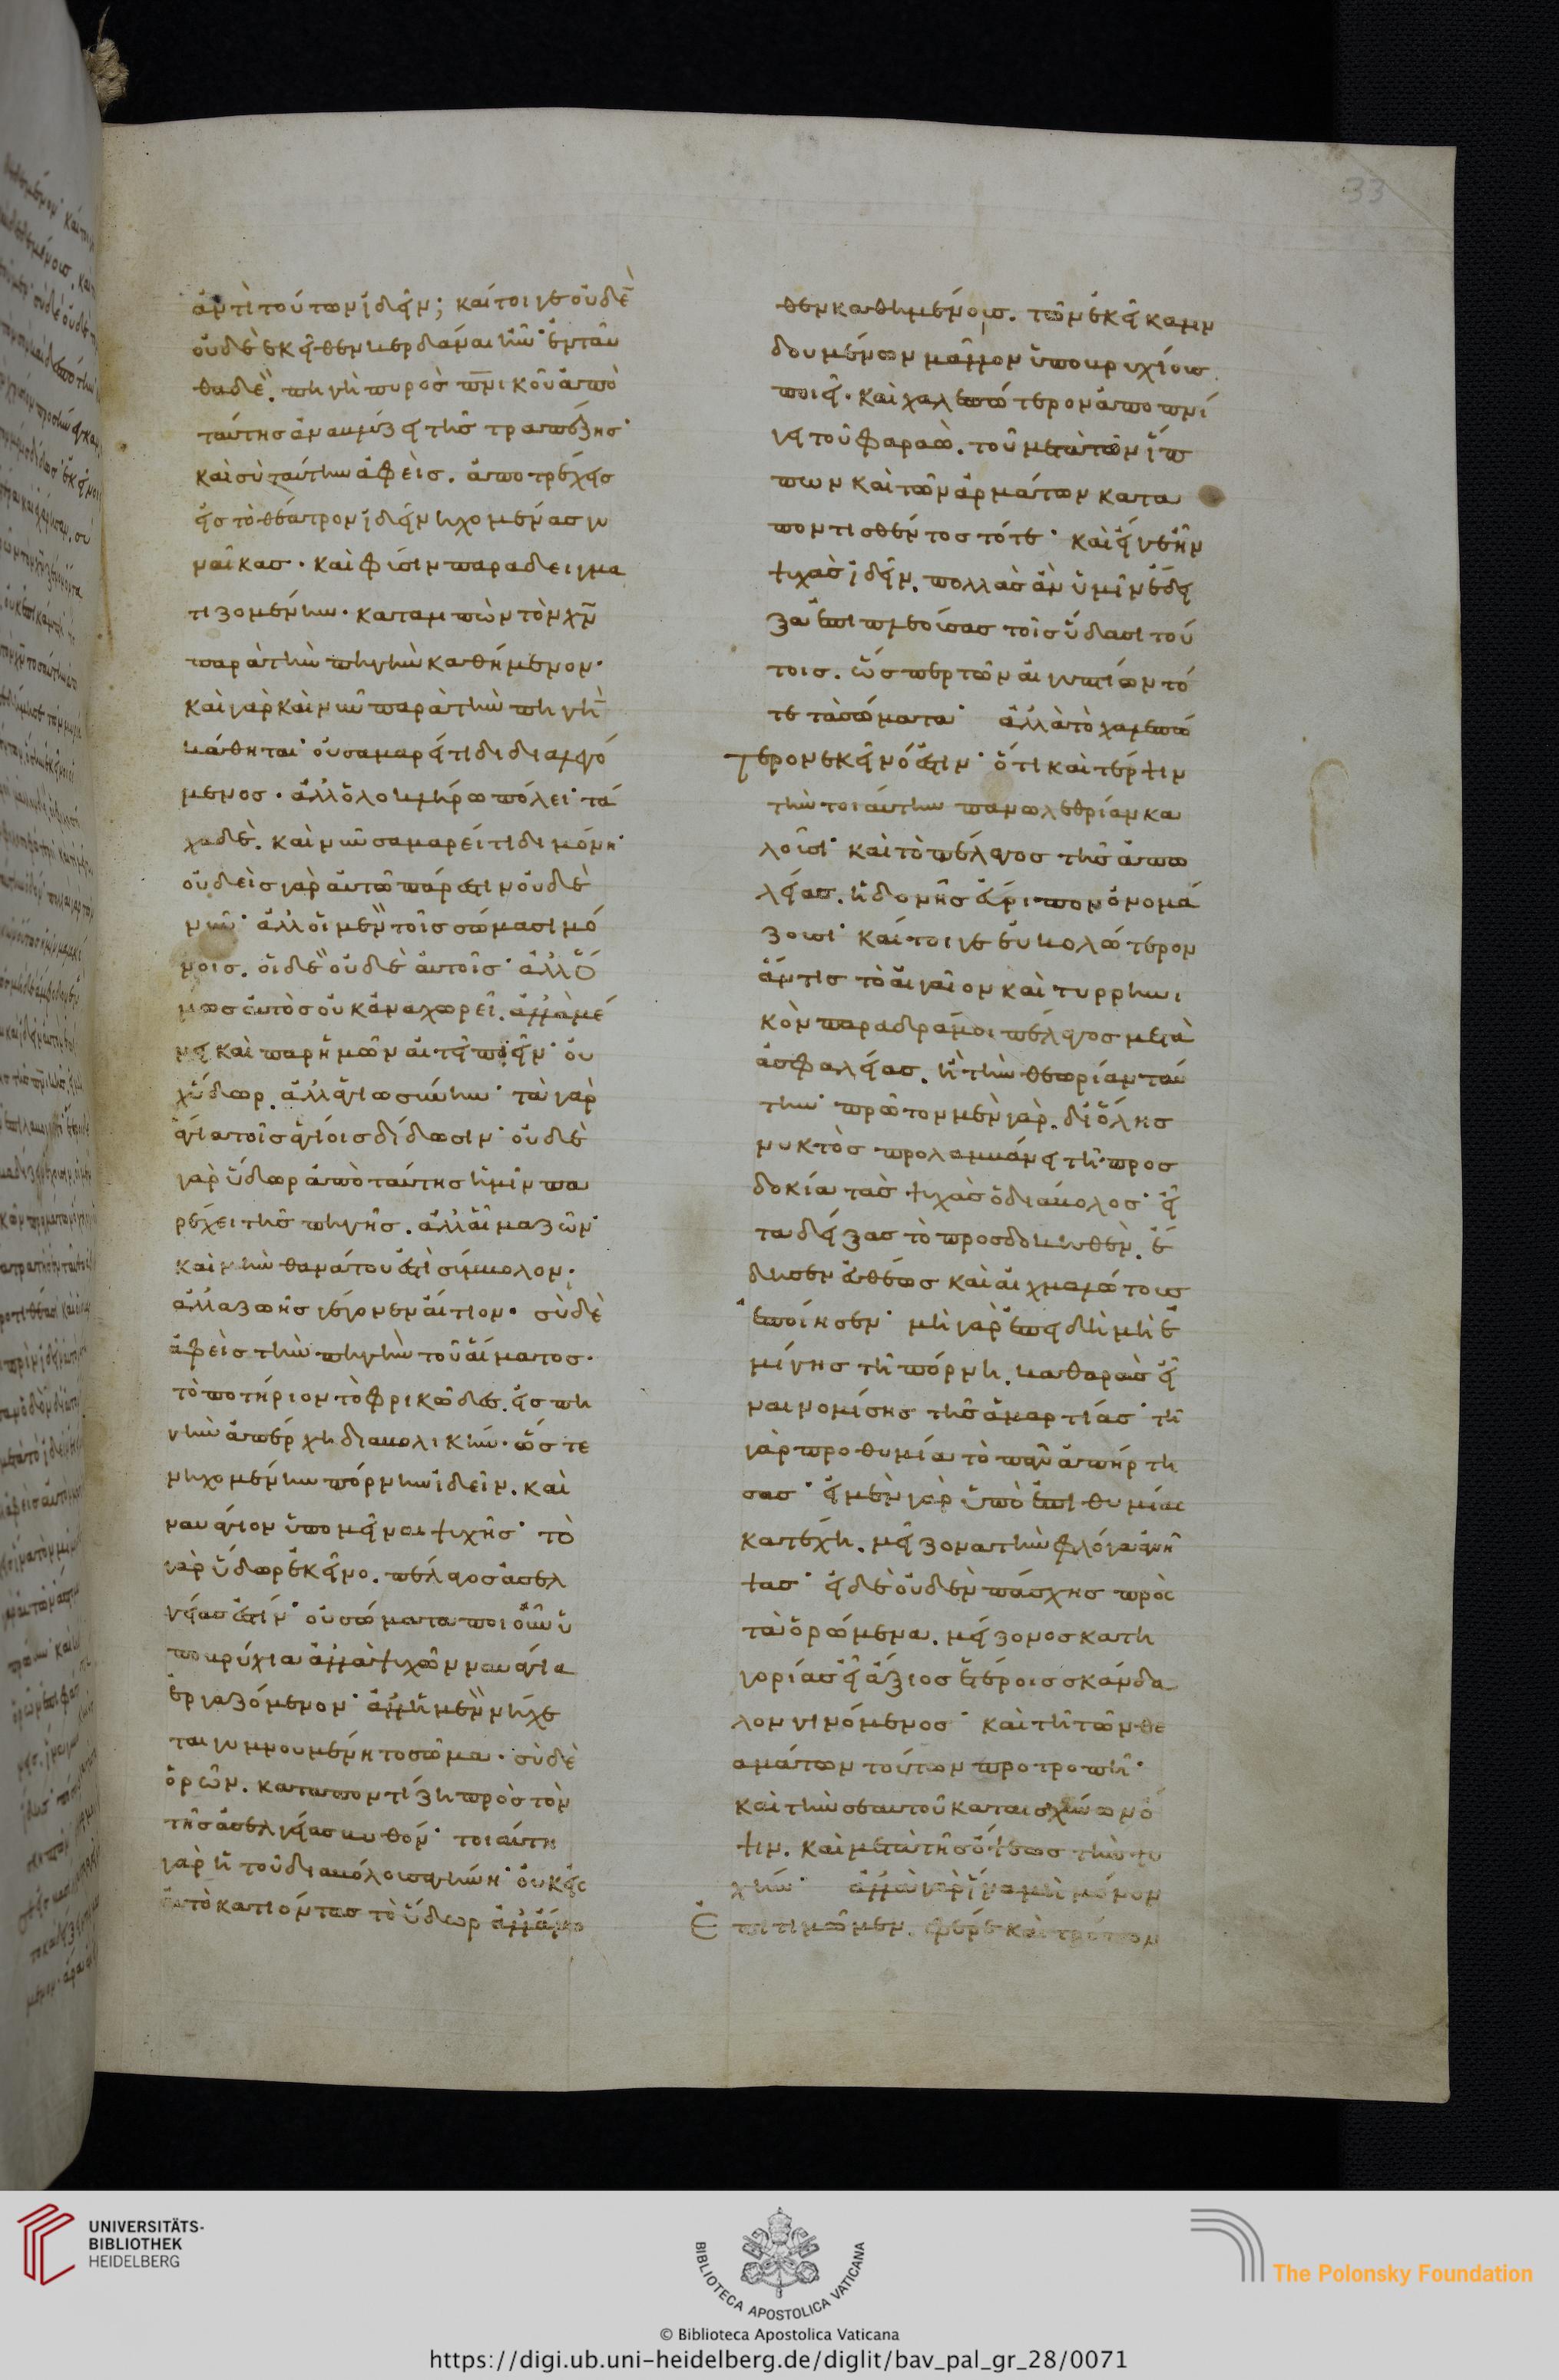 ἀντὶ τούτων ἰδεῖν; καίτοιγε οὐδὲ
οὐδὲ ἐκεῖθεν κερδάναι ἦν· ἐνταῦ
θα δὲ. πηγὴ πυρὸς πνικοῦ ἀπὸ
ταύτης ἀναβλύζει τῆς τραπέζης·
καὶ σὺ ταύτην ἀφεὶς. ἀποτρέχεις
εἰς τὸ θέατρον ἰδεῖν νηχομένας γυ
ναῖκας. καὶ φύσιν παραδειγμα
τιζομένην. καταλιπὼν τὸν χν
παρὰ τὴν πηγὴν καθήμενον.
καὶ γὰρ καὶ νῦν παρὰ τὴν πηγὴ
κάθηται οὐ σαμαρείτιδι διαλεγό
μενος. ἀλλ' ὁλοκλήρω πόλει· τά
χα δὲ. καὶ νῦν σαμαρείτιδι μόνη·
οὐδεὶς γὰρ αὐτῶ πάρεστιν οὐδὲ
νῦν· ἀλλ' οἱ μὲν τοῖς σώμασι μό
νοις. οἱ δὲ οὐδὲ αὐτοῖς· ἀλλ' ὅ
μως αὐτὸς οὐκ ἀναχωρεῖ. ἀλλὰ μέ
νει καὶ παρ' ἡμῶν αἰτεῖ πιεῖν· οὐ
χ' ὕδωρ. ἀλλ' ἁγιωσύνην· τὰ γὰρ
ἅγια τοῖς ἁγίοις δίδωσιν· οὐδὲ
γὰρ ὕδωρ ἀπὸ ταύτης ἡμῖν πα
ρέχει τῆς πηγῆς. ἀλλ' αἷμα ζῶν·
καὶ ἦν θανάτου ἐστὶ σύμβολον.
ἀλλὰ ζωῆς γέγονεν αἴτιον. σὺ δὲ
ἀφεὶς τὴν πηγὴν τοῦ αἵματος.
τὸ ποτήριον τὸ φρικῶδες. εἰς πη
γὴν ἀπέρχη διαβολικήν. ὥστε
νηχομένην πόρνην ἰδεῖν. καὶ
ναυάγιον ὑπομεῖναι ψυχῆς· τὸ
γὰρ ὕδωρ ἐκεῖνο. πέλαγος ἀσελ
γείας ἐστίν· οὐ σώματα ποιοῦν ὑ
ποβρύχια ἀλλὰ ψυχῶν ναυάγια
ἐργαζόμενον· ἀλλ' ἡ μὲν νήχε
ται γυμνουμένη τὸ σῶμα. σὺ δὲ
ὁρῶν. καταποντίζη πρὸς τὸν
τῆς ἀσελγείας βυθόν· τοιαύτη
γὰρ ἡ τοῦ διαβόλου σαγήνη· οὐκ εἰς
αὐτὸ κατιόντας τὸ ὕδωρ ἀλλ' ἄνω
θεν καθημένους. τῶν ἐκεῖ καλιν
δουμένων μᾶλλον ὑποβρυχίους
ποιεῖ. καὶ χαλεπώτερον ἀποπνί
γει τοῦ φαραὼ. τοῦ μετὰ τῶν ἵπ
πων καὶ τῶν ἁρμάτων κατα
ποντισθέντος τότε· καὶ εἴγε ἦν
ψυχὰς ἰδεῖν. πολλὰς ἂν ὑμῖν ἔδει
ξα ἐπιπλεούσας τοῖς ὕδασι τού
τοις. ὥσπερ τῶν αἰγυπτίων τό
τε τὰ σώματα· ἀλλὰ τὸ χαλεπώ
τερον ἐκεῖνό ἐστιν· ὅτι καὶ τέρψιν
τὴν τοιαύτην πανωλεθρίαν κα
λοῦσι· καὶ τὸ πέλαγος τῆς ἀπω
λείας. ἡδονῆς εὔριπον ὀνομά
ζουσι· καίτοιγε εὐκολώτερον
ἄν τις τὸ αἰγαῖον καὶ τυρρηνι
κὸν παραδράμοι πέλαγος μετὰ
ἀσφαλείας. ἢ τὴν θεωρίαν ταύ
την· πρῶτον μὲν γὰρ. δι' ὅλης
νυκτὸς προλαμβάνει τῆ προσ
δοκία τὰς ψυχὰς ὁ διάβολος· εἶ
τα δείξας τὸ προσδοκηθὲν. ἔ
δησεν εὐθέως καὶ αἰχμαλώτους
ἐποίησεν· μὴ γὰρ ἐπειδὴ μὴ ἐ
μίγης τῆ πόρνη. καθαρὸς εἶ
ναι νομίσης τῆς ἁμαρτίας· τῆ
γὰρ προθυμία τὸ πᾶν ἀπήρτη
σας· εἰ μὲν γὰρ ὑπὸ ἐπιθυμίας
κατέχη. μείζονα τὴν φλόγα ἀνῆ
ψας· εἰ δὲ οὐδὲν πάσχης πρὸς
τὰ ὁρώμενα. μείζονος κατη
γορίας εἶ ἄξιος ἑτέροις σκάνδα
λον γινόμενος· καὶ τῆ τῶν θε
αμάτων τούτων προτροπῆ·
καὶ τὴν σεαυτοῦ καταισχύνων ὄ
ψιν. καὶ μετὰ τῆς ὄψεως τὴν ψυ
χήν· ἀλλὰ γὰρ ἵνα μὴ μόνον
Ἐπιτιμῶμεν. φέρε καὶ τρόπον
33
UNIVERSITÄTS-
BIBLIOTHEK
HEIDELBERG
BIBLIOTECA APOSTOLICA VATICANA
The Polonsky Foundation
© Biblioteca Apostolica Vaticana
https://digi.ub.uni-heidelberg.de/diglit/bav_pal_gr_28/0071